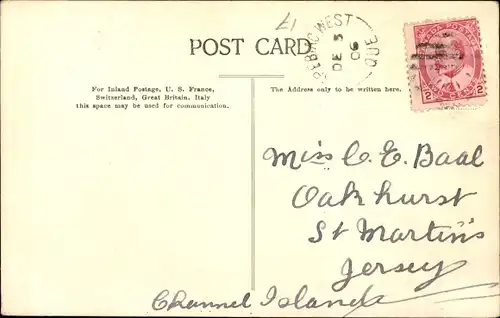 17
POST CARD
QUEBEC WEST
QUE
DE 5
06
For Inland Postage, U. S. France,
Switzerland, Great Britain. Italy
this space may be used for communication.
The Address only to be written here.
2 2
Miss C. E. Baal
Oakhurst
St Martins
Jersey
Channel Islands